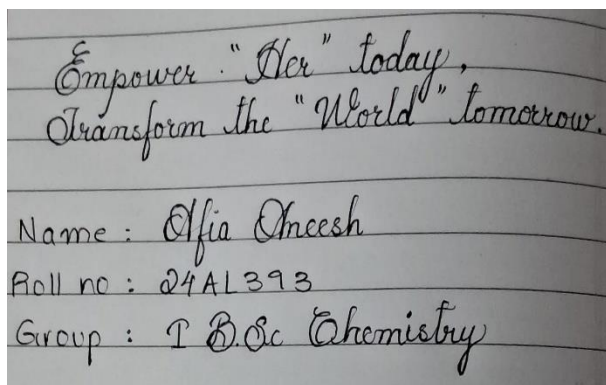 Empower "Her" today,
Transform the "World" tomorrow.
Name : Alfia Aneesh
Roll no : 24AL393
Group : I B.Sc Chemistry